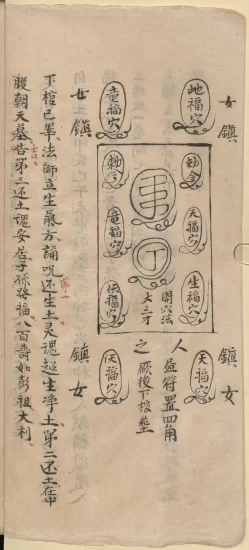 女鎮
地福穴
勅令
天福穴
生福穴
天福穴
鎮女
人
並符置四角
開穴法
大三才
之
厥後下棺墊
女鎮
竜福穴
勅令
竜福穴
伏福穴
天福穴
鎮女
下棺已畢法師立生氣方誦呪还生土灵魂超生淨土第二还土在中
腹朝天墓吉第三还土魂安居子孫發福八百壽如彭祖大利
第一